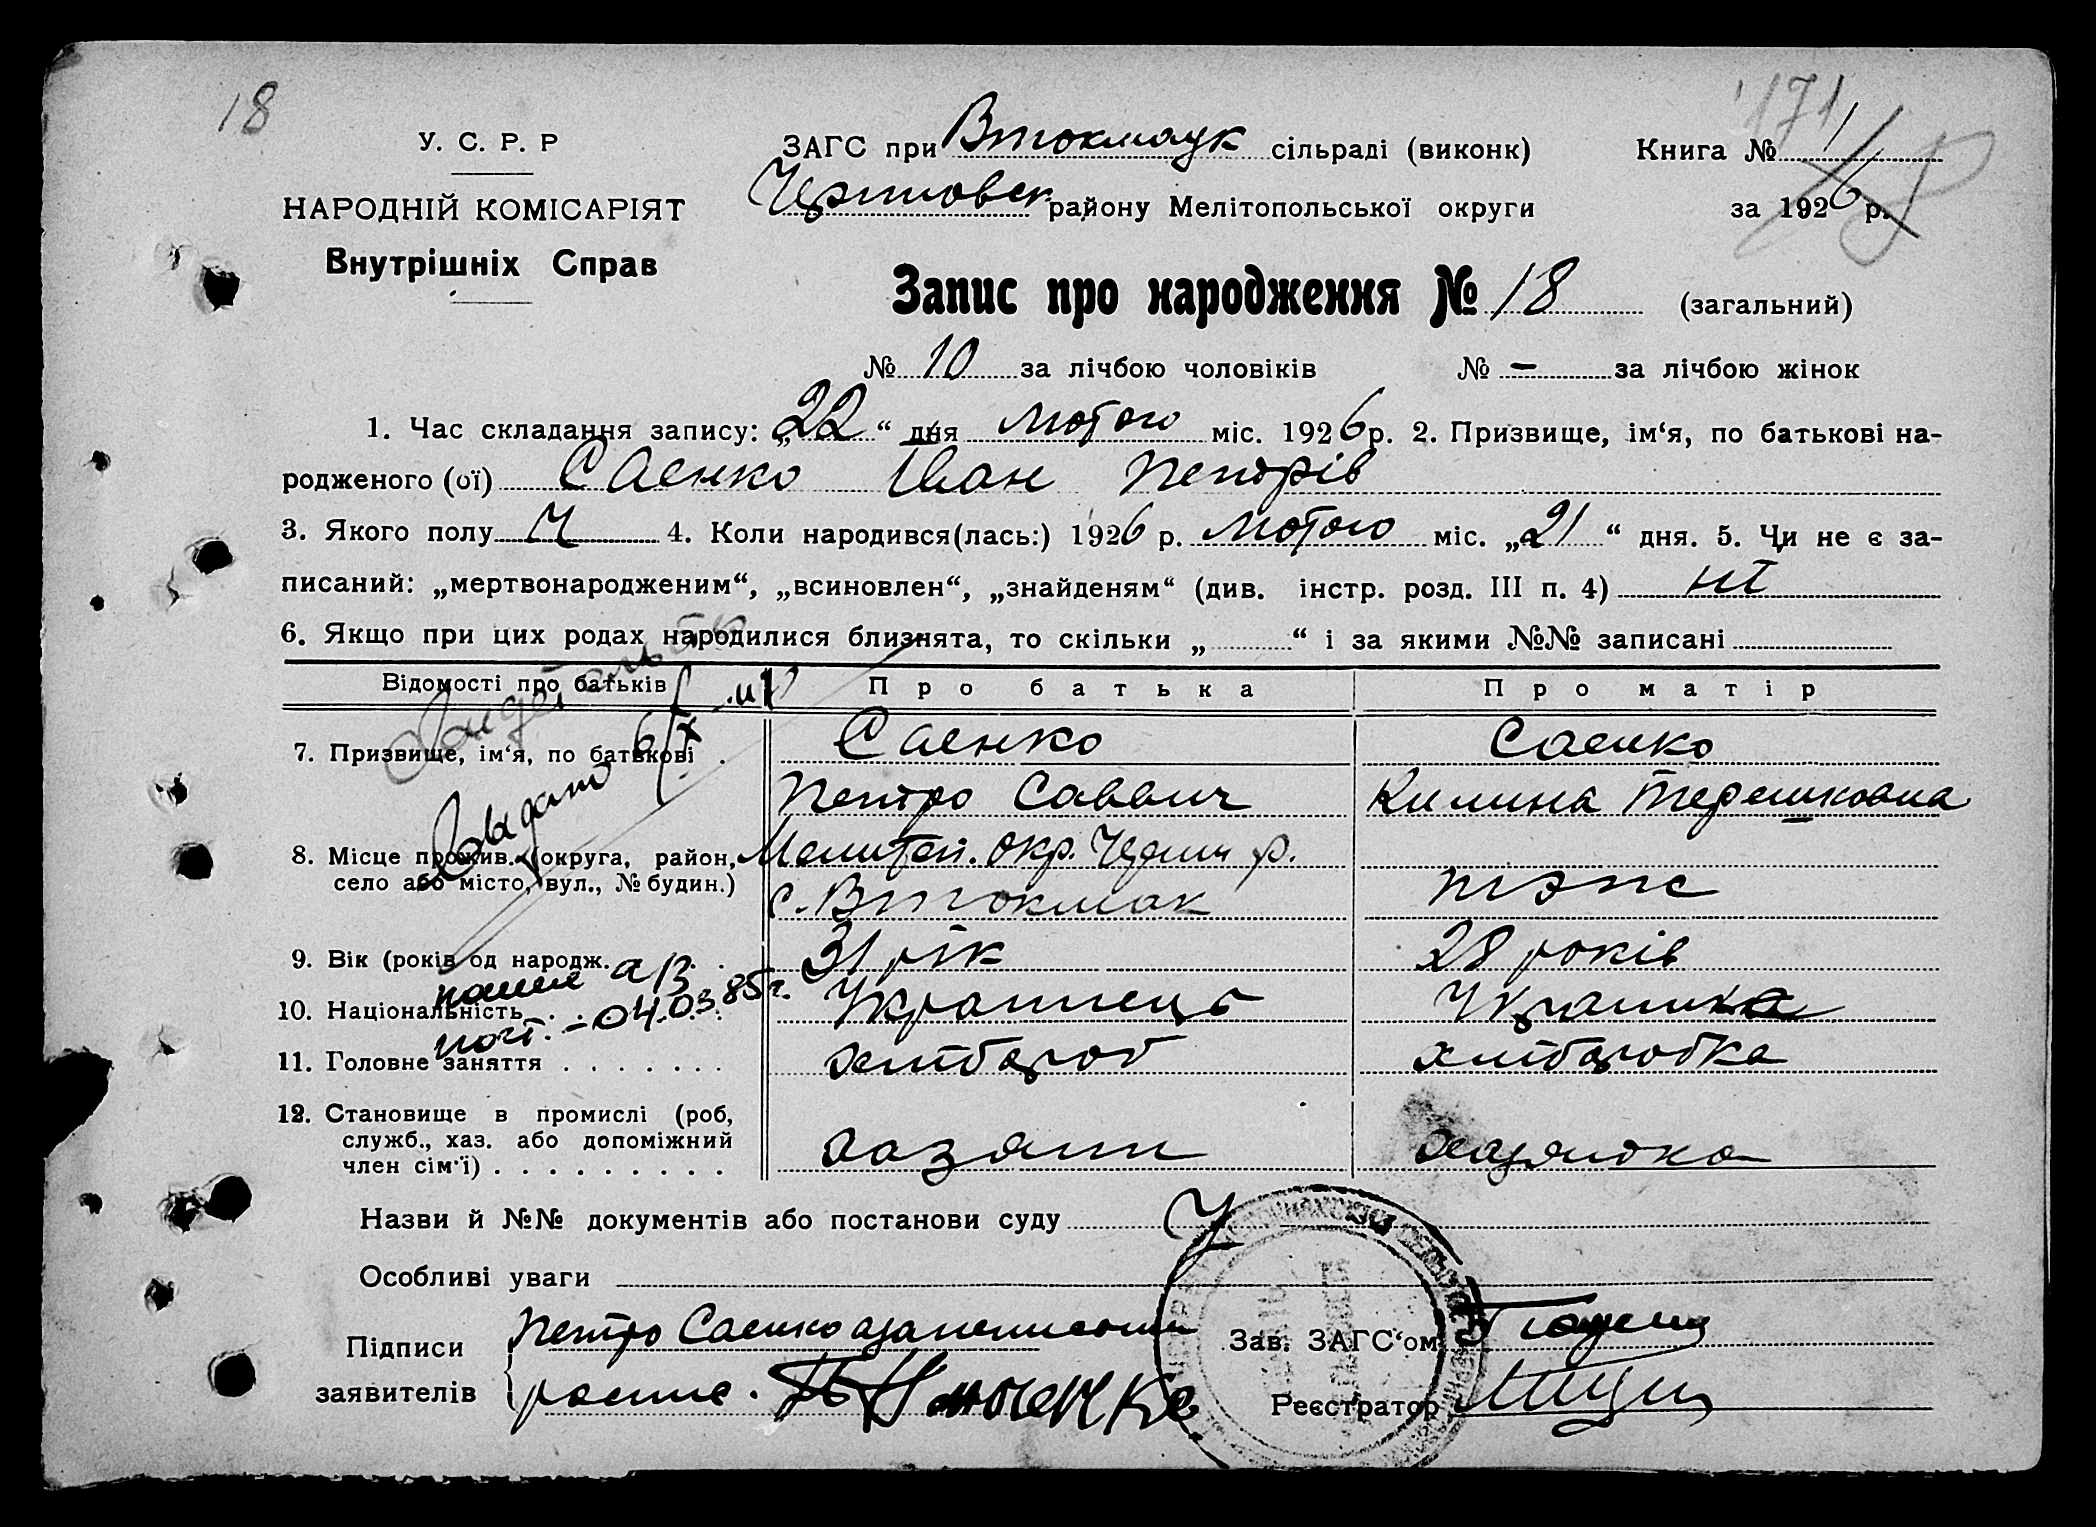 18
171
У. С. Р. Р
НАРОДНІЙ КОМІСАРІЯТ
Внутрішніх Справ
ЗАГС при Втокмацк сільраді (виконк)
Книга № 1
району Мелітопольської округи
за 1926 р.
18
Запис про народження № 18 (загальний)
№ 10 за лічбою чоловіків № — за лічбою жінок
1. Час складання запису: „22“ дня лютого міс. 1926 р. 2. Призвище, ім‘я, по батькові на-
родженого (ої) Саєнко Іван Петрів
3. Якого полу Ч 4. Коли народився(лась:) 1926 р. лютого міс. „21“ дня. 5. Чи не є за-
писаний: „мертвонародженим“, „всиновлен“, „знайденям“ (див. інстр. розд. III п. 4) ні
6. Якщо при цих родах народилися близнята, то скільки „ “ і за якими №№ записані
Відомості про батьків Про батька Про матір
7. Призвище, ім‘я, по батькові Саенко Саенко
Петро Саввич Килина Терешковна
8. Місце прожив. (округа, район, Мелітоп. окр. р.
село або місто, вул., № будин.) с. Втокмак тэпс
9. Вік (років од народж. 31 рік 28 років
10. Національність Украінець Украінка
- 04.03.85 г.
11. Головне заняття хлібороб хліборобка
12. Становище в промислі (роб,
служб., хаз. або допоміжний
член сім‘ї) хазяін хазяйка
Назви й №№ документів або постанови суду
Особливі уваги
Підписи Петро Саенко а за
заявителів
Зав. ЗАГС‘ом
Реєстратор